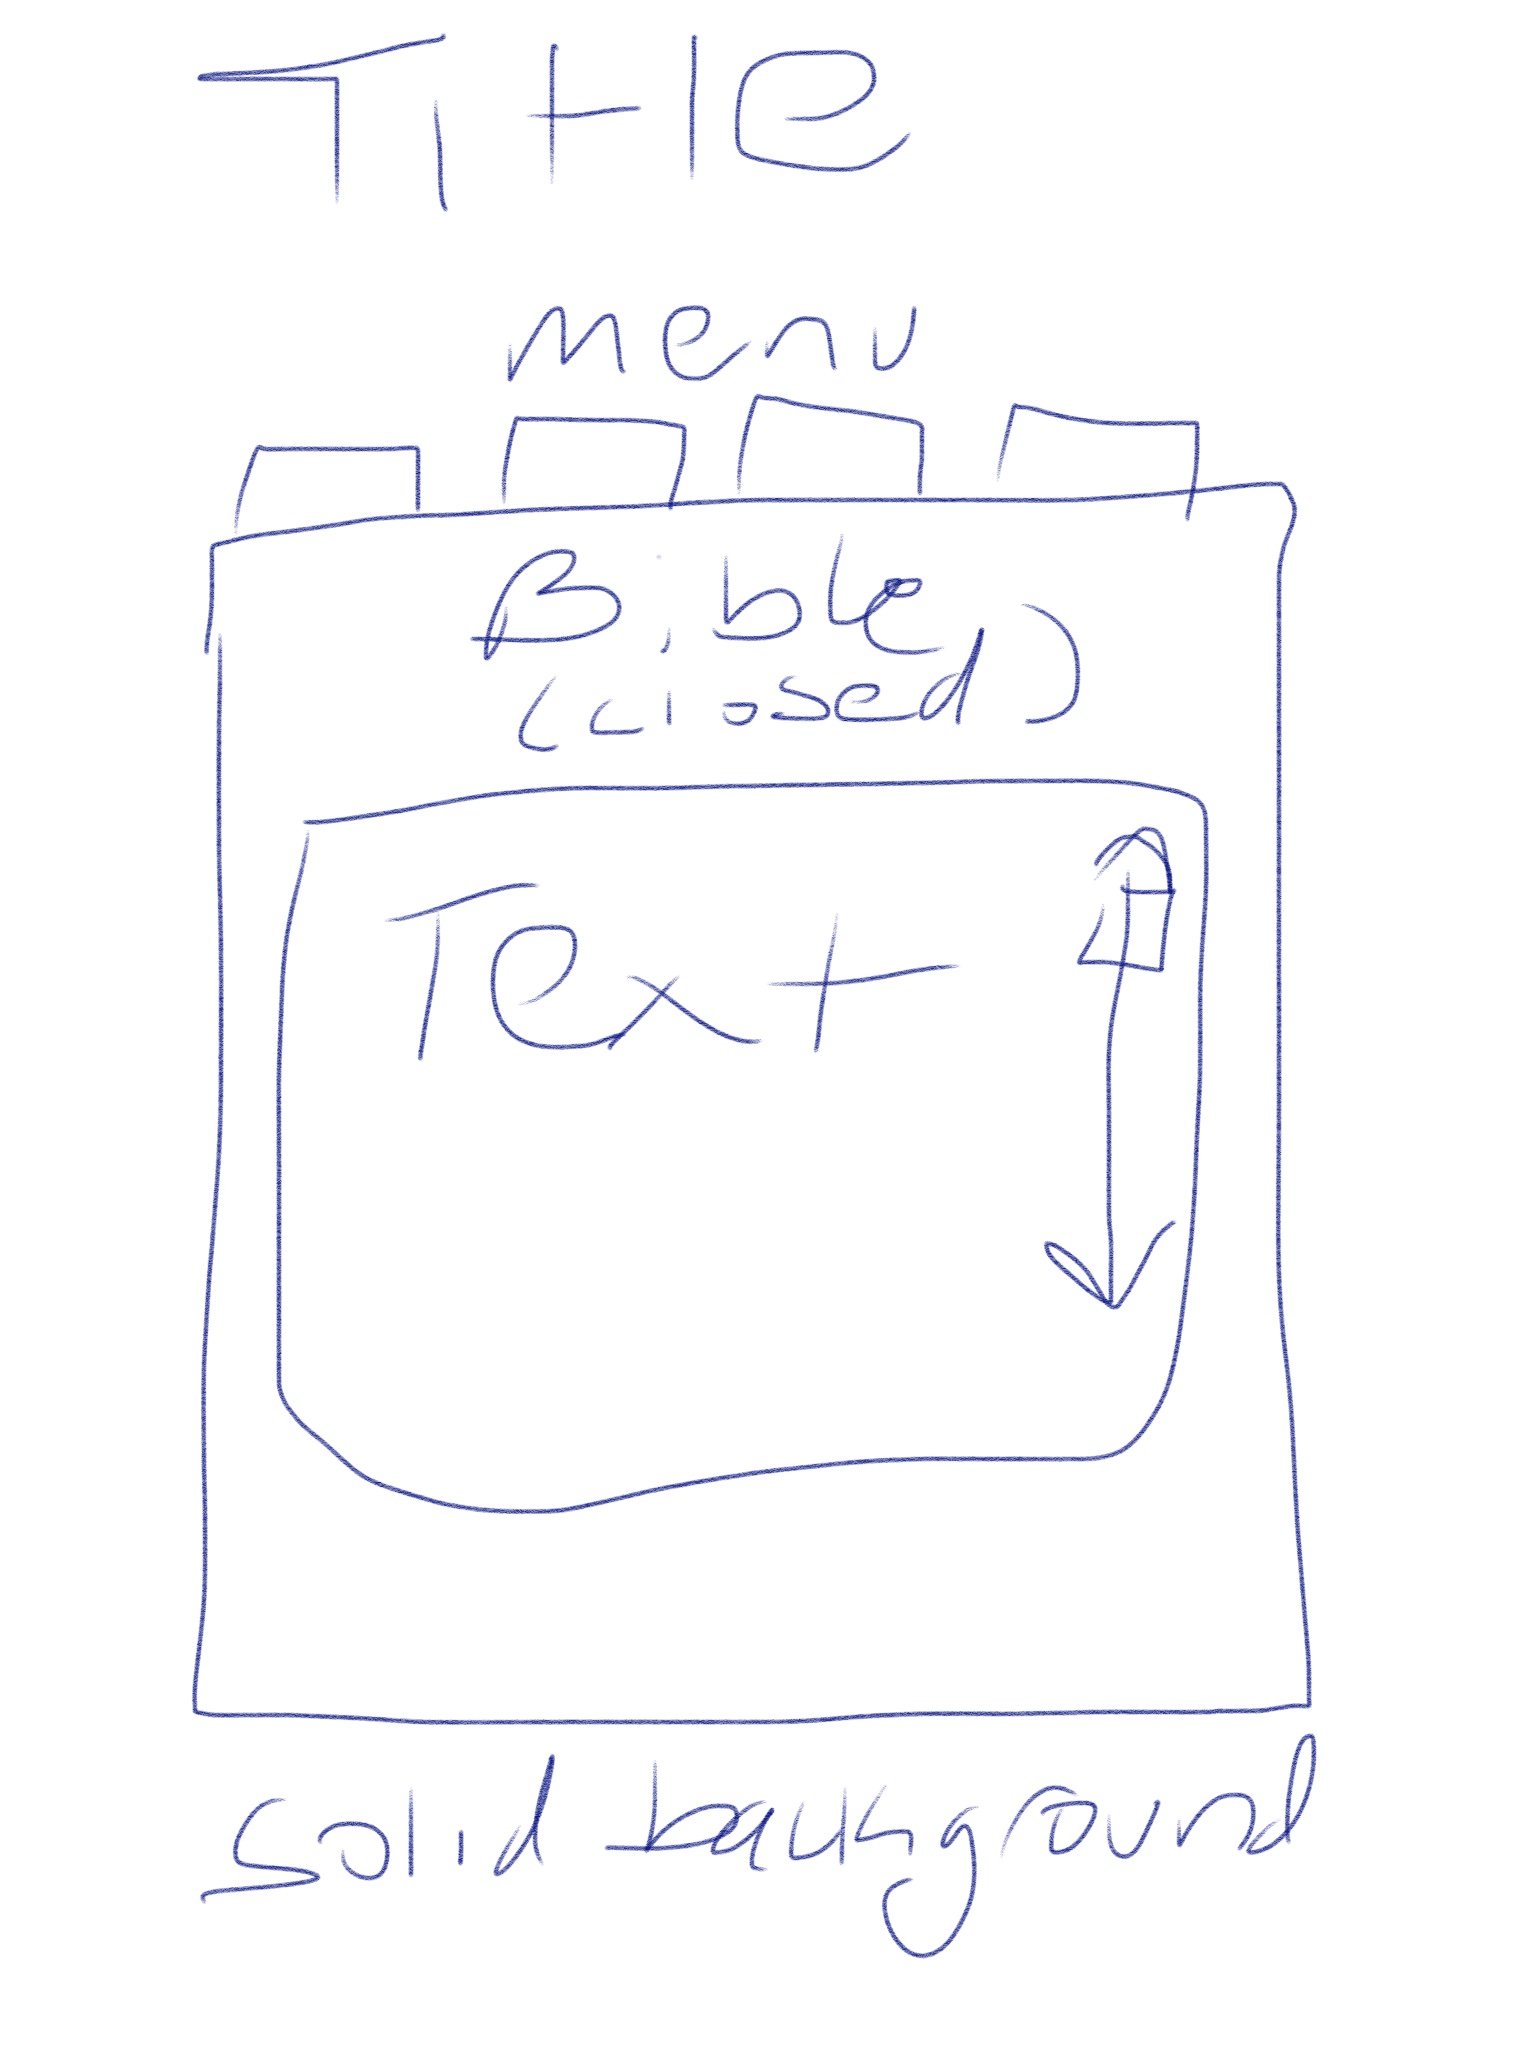 Title
menu
Bible
(closed)
Text
solid background